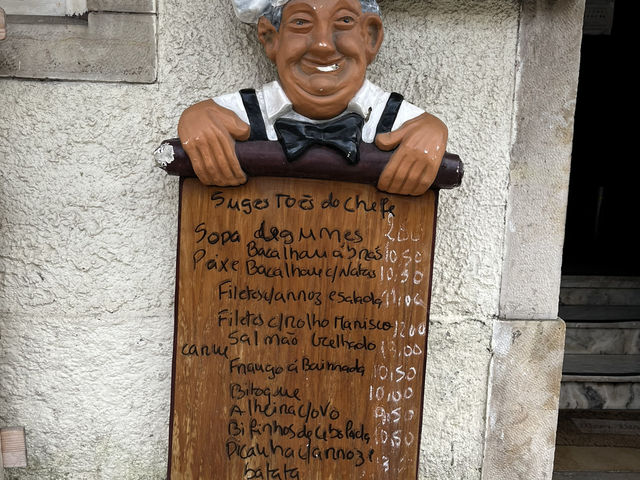 Sugestoẽs do Chefe
Sopa degumes 2,00
Bacalhau á brás 10,50
Peixe Bacalhau c/Natas 10,50
Filetes c/arroz e salada 11,00
Filetes c/molho Marisco 12,00
Salmão Grelhado 13,00
carne
Frango á Bairrada 10,50
Bitoque 10,00
Alheira c/ovo 9,50
Bifinhos de cebolada 10,50
Picanha c/arroz e
batata